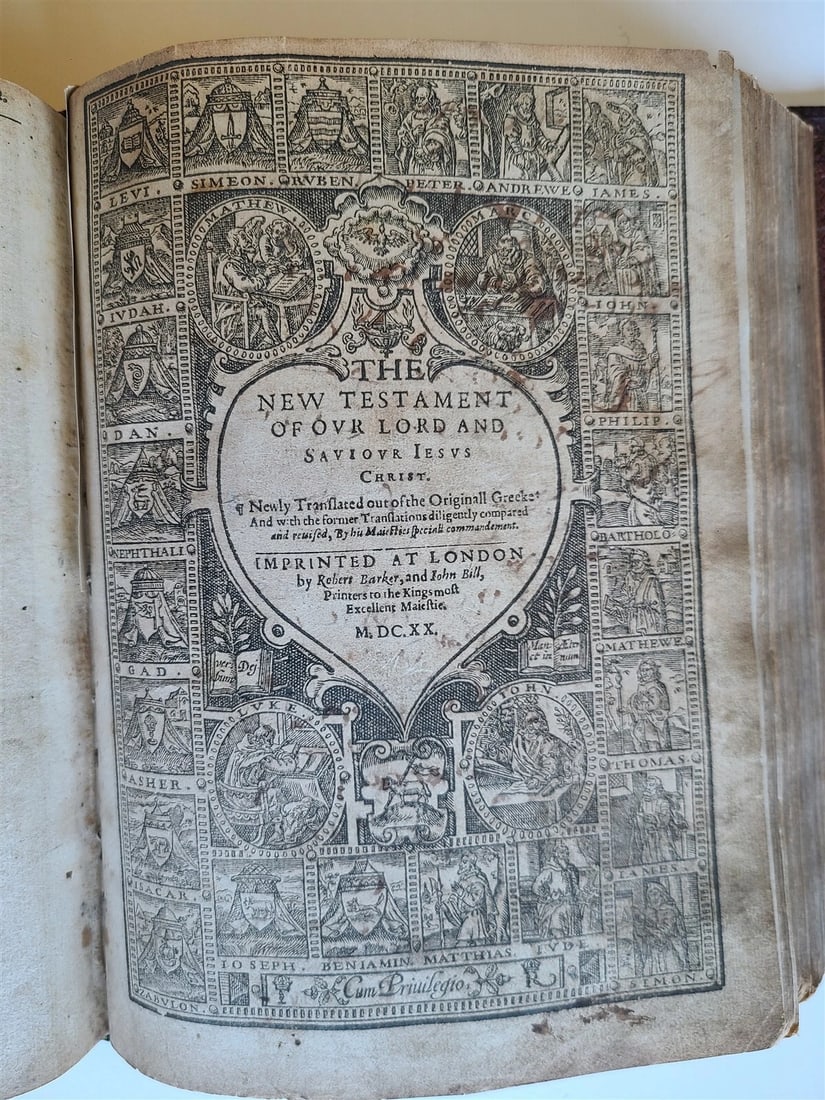 LEVI. SIMEON. RVBEN. PETER. ANDREWE IAMES.
MATHEW. MARCK
IVDAH. IOHN.
DAN. PHILIP.
NEPHTHALI BARTHOLO.
GAD. MATHEWE
ASHER. THOMAS.
ISACAR. IAMES.
ZABVLON. SIMON.
THE
NEW TESTAMENT
OF OVR LORD AND
SAVIOVR IESVS
CHRIST.
¶ Newly Tranſlated out of the Originall Greeke:
And with the former Tranſlations diligently compared
and reuiſed, By his Maieſties ſpeciall commandement.
IMPRINTED AT LONDON
by Robert Barker, and Iohn Bill,
Printers to the Kings moſt
Excellent Maieſtie.
M.DC.XX.
verbum Dej
Manet in Æternum
LVKE IOHN
IOSEPH. BENJAMIN. MATTHIAS. IVDE.
Cum Priuilegio.